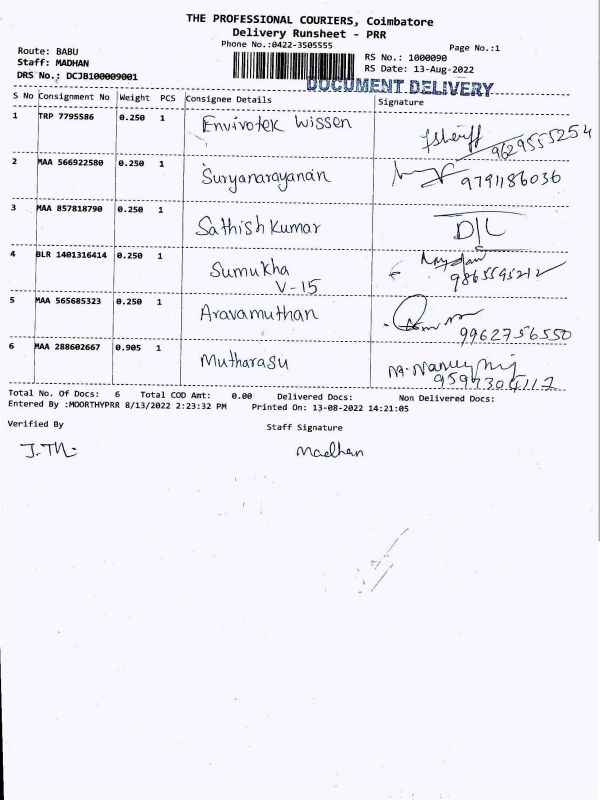 THE PROFESSIONAL COURIERS, Coimbatore
Delivery Runsheet - PRR
Phone No.:0422-3505555
Page No.:1
Route: BABU
Staff: MADHAN
DRS No.: DCJB100009001
RS No.: 1000090
RS Date: 13-Aug-2022
DOCUMENT DELIVERY
S No Consignment No Weight PCS Consignee Details Signature
1 TRP 7795586 0.250 1 Envivotek Wissen
9629555254
2 MAA 566922580 0.250 1 Suryanarayanan 9791186036
3 MAA 857818790 0.250 1 Sathish Kumar D/L
4 BLR 1401316414 0.250 1 Sumukha
V-15 9865595212
5 MAA 565685323 0.250 1 Aravamuthan
9962756550
6 MAA 288602667 0.905 1 Mutharasu
Total No. Of Docs: 6 Total COD Amt: 0.00 Delivered Docs: Non Delivered Docs:
Entered By :MOORTHYPRR 8/13/2022 2:23:32 PM Printed On: 13-08-2022 14:21:05
Verified By Staff Signature
Madhan